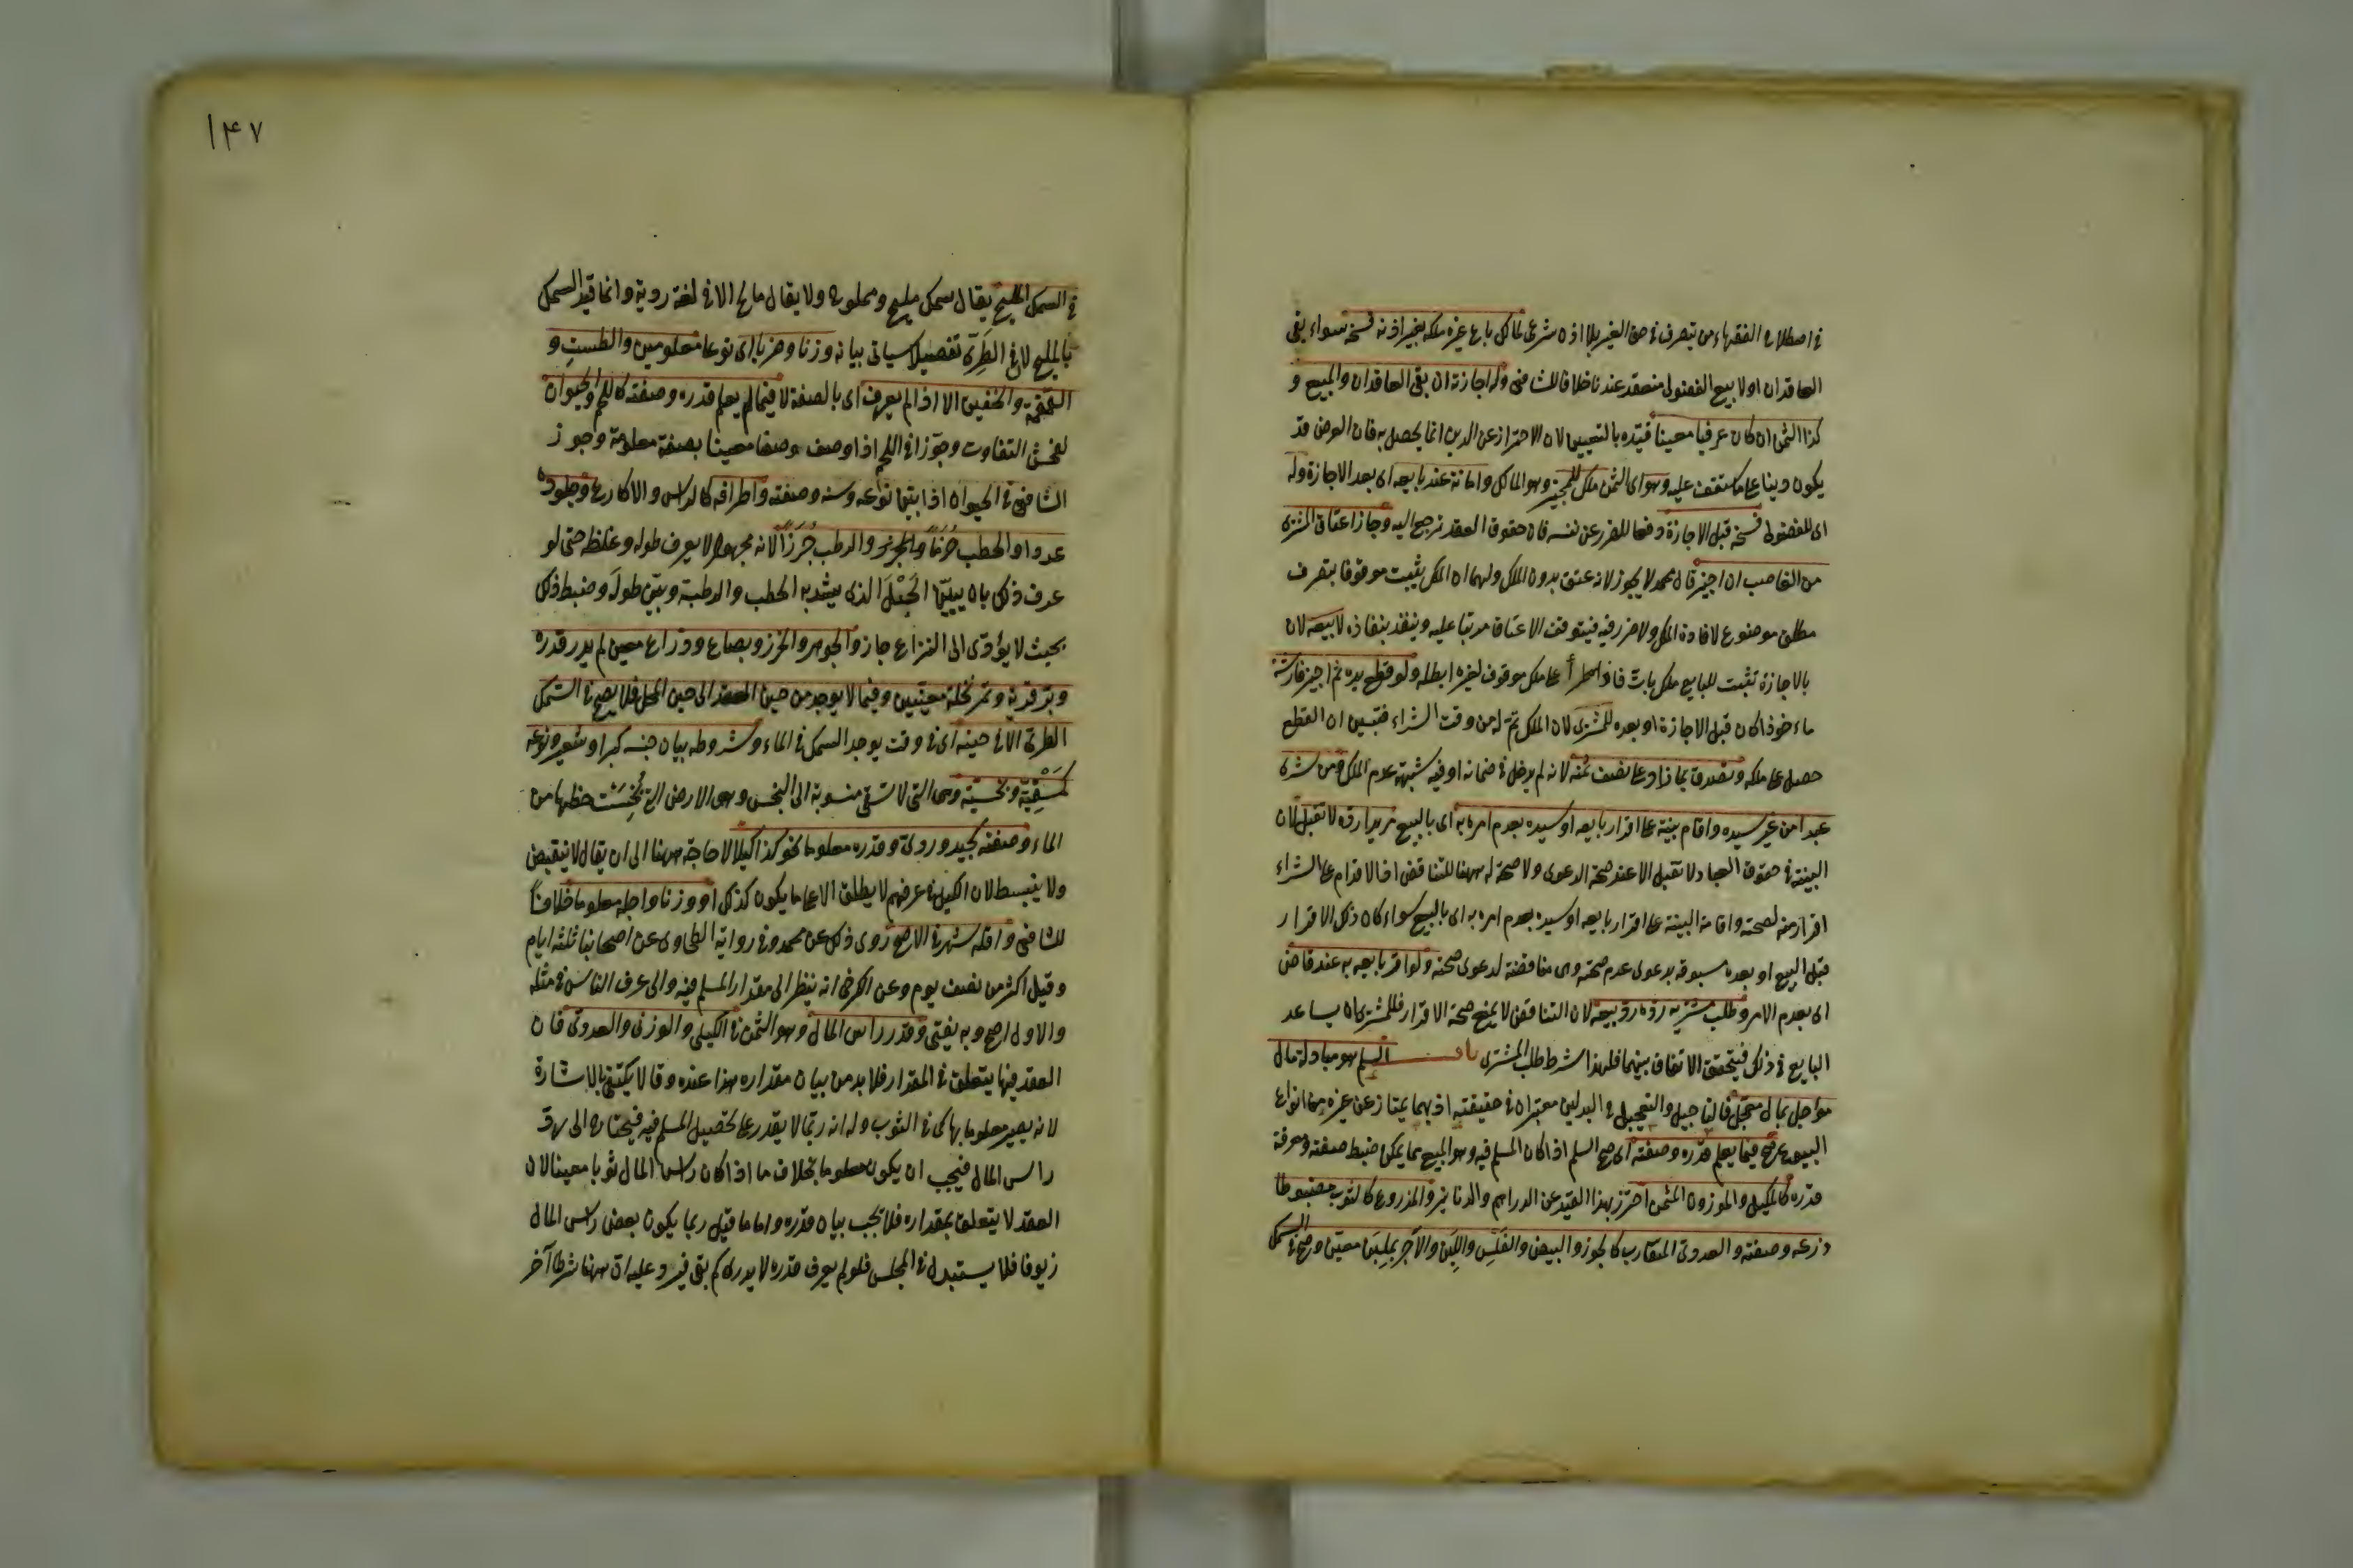 في اصطلاح الفقهاء من يتصرف في حق الغير بلا اذن شرعي لمالك باع غيره ملكه بغير اذنه فسخه سواء بقي
العاقدان اولا بيع الفضولي منعقد عندنا خلافا للشافعي وله اجازة ان بقي العاقدان والمبيع و
كذا الثمن ان كان عرضا معينا قيده بالتعيين لان الاحتراز عن الدين انما يحصل به فان العرض قد
يكون دينا على ما ستقف عليه وهو اى الثمن ملك للمجيز وهو المالك وامانة عند بايعه اى بعد الاجازة وله
اى للفضولي فسخه قبل الاجازة دفعا للضرر عن نفسه فان حقوق العقد ترجع اليه وجاز اعتاق المشترى
من الغاصب ان اجيز قال محمد لا يجوز لانه عتق بدون الملك ولهما ان الملك يثبت موقوفا بتصرف
مطلق موضوع لافادة الملك ولا ضرر فيه فيتوقف الاعتاق مرتبا عليه وينفذ بنفاذه لا بيعه لان
بالاجازة تثبت للبايع ملك بات فاذا طرأ على ملك موقوف لغيره ابطله ولو قطع يده ثم اجيز فارشه
ماء خوذا كان قبل الاجازة او بعده للمشترى لان الملك تم له من وقت الشراء فتبين ان القطع
حصل على ملكه وتصدق بما زاد على نصف ثمنه لانه لم يدخل في ضمانه او فيه شبهة عدم الملك ومن شرى
عبدا من غير سيده واقام بينة على اقرار بايعه او سيده بعدم امره به اى بالبيع مريدا رده لا تقبل لان
البينة في حقوق العباد لا تقبل الا عند صحة الدعوى ولا صحة له ههنا للتناقض اذ الاقدام على الشراء
اقرار منه لصحته واقامة البينة على اقرار بايعه او سيده بعدم امره به اى بالبيع سواء كان ذلك الاقرار
قبل البيع او بعده مسبوقة بدعوى عدم صحته وهى مناقضة لدعوى صحته ولو اقر بايعه به عند قاض
اى بعدم الامر وطلب مشتريه رده رد بيعه لان التناقض لا يمنع صحة الاقرار فللمشترى ان يساعد
البايع في ذلك فيتحقق الاتفاق بينهما فلهذا شرط طلب المشترى باب السلم هو مبادلة مال
مؤجل بمال معجل فالتاجيل والتعجيل في البدلين معتبران في حقيقته اذ بهما يمتاز عن غيره من انواع
البيوع صح فيما يعلم قدره وصفته اى صح السلم اذا كان المسلم فيه وهو المبيع مما يمكن ضبط صفته ومعرفة
قدره كالمكيل والموزون المثمن احترز بهذا القيد عن الدراهم والدنانير والمذروع كالثوب مضبوطا
ذرعه وصفته والعددى المتقارب كالجوز والبيض والفلس واللبن والآجر بملبن معين وصح في السمك
١٤٧
في السمك المليح يقال سمك مليح ومملوح ولا يقال مالح الا في لغة ردية وانما قيد السمك
بالمليح لان في الطرى تفصيلا سياتى بيانه وزنا وضربا اى نوعا معلومين والطست و
القمقمة والخفين الا اذا لم يعرف اى بالصفة لا فيما لم يعلم قدره وصفته كاللحم والحيوان
لفحش التفاوت وجوزا في اللحم اذا وصف وصفا معينا بصفة معلومة وجوز
الشافعي في الحيوان اذا بين نوعه وسنه وصفته واطرافه كالراس والاكارع وجلوده
عددا والحطب حزما والرطب جرزا لانه مجهول لا يعرف طوله وغلظه حتى لو
عرف ذلك بان يبين الحبل الذى يشد به الحطب والرطبة وبين طوله وضبط ذلك
بحيث لا يؤدى الى النزاع جاز والجوهر والخرز وبصاع وذراع معين لم يدر قدره
وبر قرية وتمر نخلة معينين وفيما لا يوجد من حين العقد الى حين المحل فلا يصح في السمك
الطرى الا في حينه اى في وقت يوجد السمك في الماء وشروطه بيان جنسه كبر او شعير ونوعه
كسقية وبخسية وهى التى لا تسقى منسوبة الى البخس وهى الارض التى بخست حظها من
الماء وصفته كجيد وردئ وقدره معلوما نحو كذا كيلا لا حاجة ههنا الى ان يقال لا ينقبض
ولا ينبسط لان الكيل في عرفهم لا يطلق الا على ما يكون كذلك او وزنا واجله معلوما خلافا
للشافعي واقله شهر في الاصح روى ذلك عن محمد وفي رواية الطحاوى عن اصحابنا ثلثة ايام
وقيل اكثر من نصف يوم وعن الكرخى انه ينظر الى مقدار المسلم فيه والى عرف الناس في مثله
والاول اصح وبه يفتى وقدر راس المال وهو الثمن في الكيلى والوزنى والعددى فان
العقد فيها يتعلق في المقدار فلا بد من بيان مقداره هذا عنده وقالا يكتفى بالاشارة
لانه يصير معلوما بها كما في الثوب وله انه ربما لا يقدر على تحصيل المسلم فيه فيحتاج الى رد
راس المال فيجب ان يكون معلوما بخلاف ما اذا كان راس المال ثوبا معينا لان
العقد لا يتعلق بمقداره فلا يجب بيان قدره واما ما قيل ربما يكون بعض راس المال
زيوفا فلا يستبدل في المجلس فلو لم يعرف قدره لا يدرى كم بقى فيرد عليه ان ههنا شرطا آخر